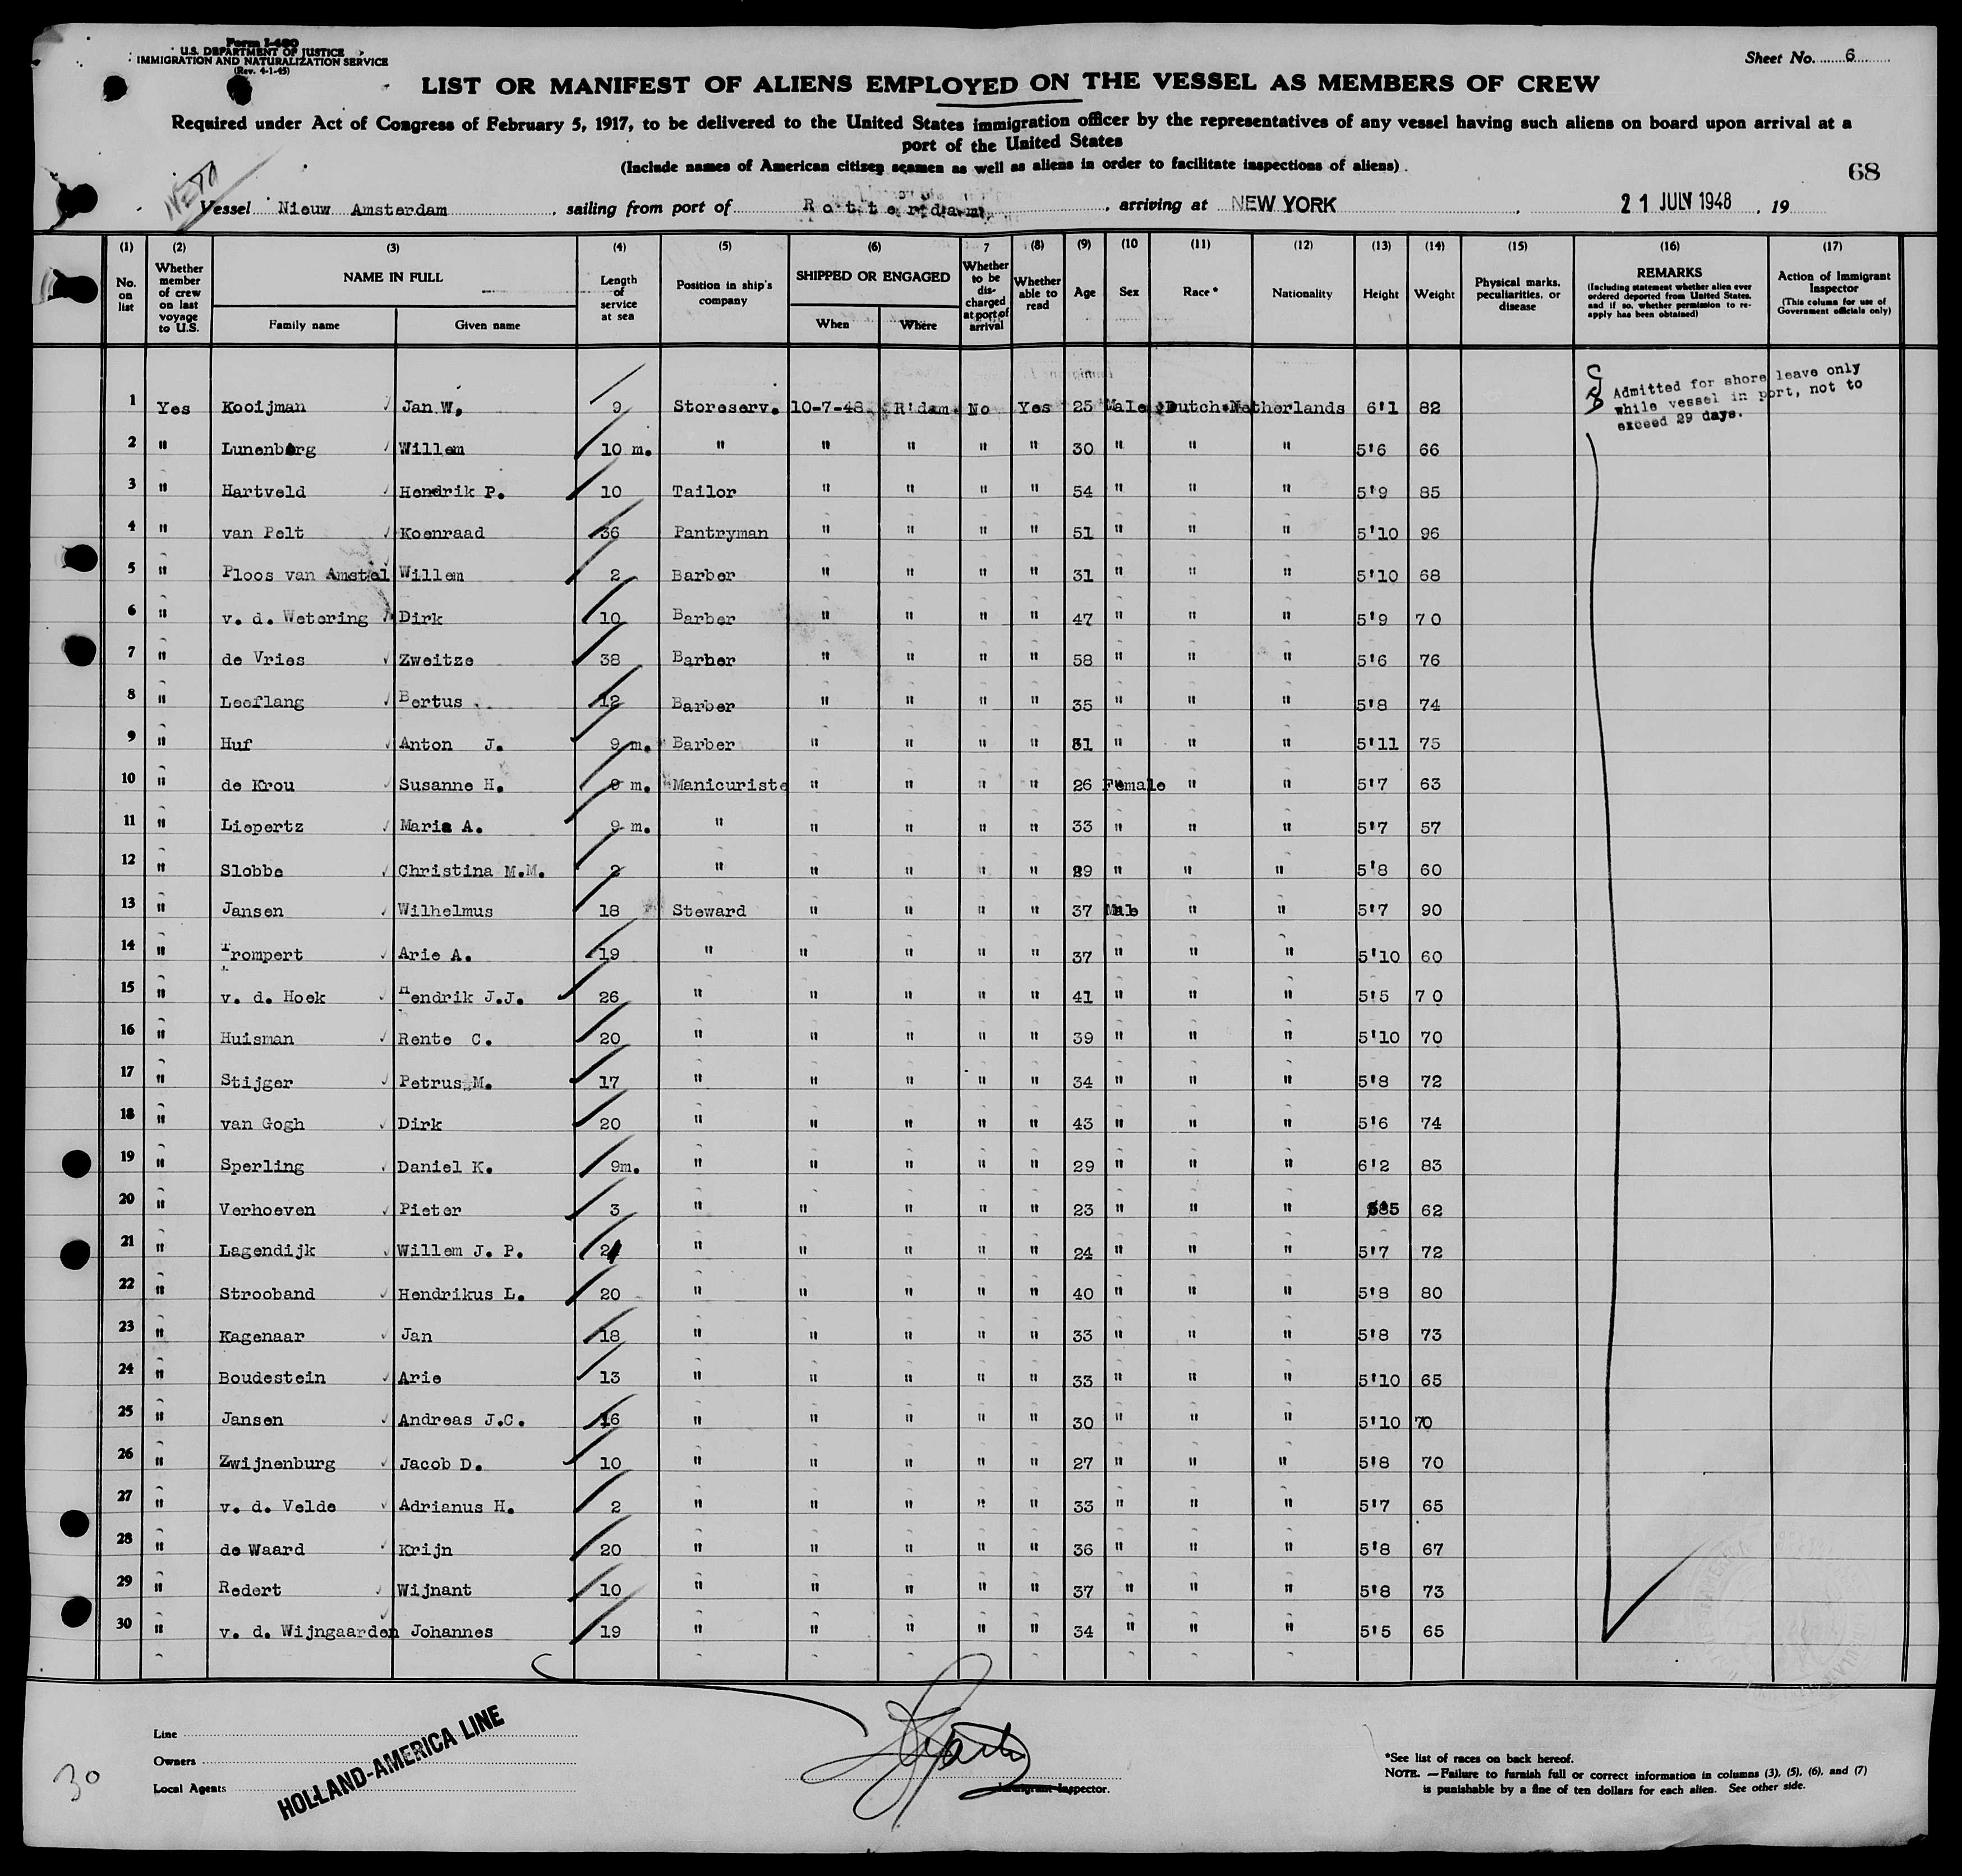 Form I-480
U.S. DEPARTMENT OF JUSTICE
IMMIGRATION AND NATURALIZATION SERVICE
(Rev. 4-1-45)
Sheet No. 6
LIST OR MANIFEST OF ALIENS EMPLOYED ON THE VESSEL AS MEMBERS OF CREW
Required under Act of Congress of February 5, 1917, to be delivered to the United States immigration officer by the representatives of any vessel having such aliens on board upon arrival at a
port of the United States
(Include names of American citizen seamen as well as aliens in order to facilitate inspections of aliens).
68
Vessel Nieuw Amsterdam, sailing from port of Rotterdam, arriving at NEW YORK, 21 JULY 1948, 19
(1) (2) (3) (4) (5) (6) 7 (8) (9) (10 (11) (12) (13) (14) (15) (16) (17)
No. on list
Whether member of crew on last voyage to U.S.
NAME IN FULL
Family name Given name
Length of service at sea
Position in ship's company
SHIPPED OR ENGAGED
When Where
Whether to be discharged at port of arrival
Whether able to read
Age
Sex
Race*
Nationality
Height
Weight
Physical marks, peculiarities, or disease
REMARKS
(Including statement whether alien ever ordered deported from United States, and if so, whether permission to re-apply has been obtained)
Action of Immigrant Inspector
(This column for use of Government officials only)
Admitted for shore leave only
while vessel in port, not to
exceed 29 days.
1 Yes Kooijman Jan W. 9 Storeserv. 10-7-48 R'dam No Yes 25 Male Dutch Netherlands 6'1 82
2 " Lunenberg Willem 10 m. " " " " " 30 " " " 5'6 66
3 " Hartveld Hendrik P. 10 Tailor " " " " 54 " " " 5'9 85
4 " van Pelt Koenraad 36 Pantryman " " " " 51 " " " 5'10 96
5 " Ploos van Amstel Willem 2 Barber " " " " 31 " " " 5'10 68
6 " v. d. Wetering Dirk 10 Barber " " " " 47 " " " 5'9 70
7 " de Vries Zweitze 38 Barber " " " " 58 " " " 5'6 76
8 " Leeflang Bertus 12 Barber " " " " 35 " " " 5'8 74
9 " Huf Anton J. 9 m. Barber " " " " 31 " " " 5'11 75
10 " de Krou Susanne H. 9 m. Manicuriste " " " " 26 Female " " 5'7 63
11 " Liepertz Maria A. 9 m. " " " " " 33 " " " 5'7 57
12 " Slobbe Christina M.M. 2 " " " " " 29 " " " 5'8 60
13 " Jansen Wilhelmus 18 Steward " " " " 37 Male " " 5'7 90
14 " Trompert Arie A. 19 " " " " " 37 " " " 5'10 60
15 " v. d. Hoek Hendrik J.J. 26 " " " " " 41 " " " 5'5 70
16 " Huisman Rente C. 20 " " " " " 39 " " " 5'10 70
17 " Stijger Petrus M. 17 " " " " " 34 " " " 5'8 72
18 " van Gogh Dirk 20 " " " " " 43 " " " 5'6 74
19 " Sperling Daniel K. 9m. " " " " " 29 " " " 6'2 83
20 " Verhoeven Pieter 3 " " " " " 23 " " " 62
21 " Lagendijk Willem J. P. 2 " " " " " 24 " " " 5'7 72
22 " Strooband Hendrikus L. 20 " " " " " 40 " " " 5'8 80
23 " Kagenaar Jan 18 " " " " " 33 " " " 5'8 73
24 " Boudestein Arie 13 " " " " " 33 " " " 5'10 65
25 " Jansen Andreas J.C. 16 " " " " " 30 " " " 5'10 70
26 " Zwijnenburg Jacob D. 10 " " " " " 27 " " " 5'8 70
27 " v. d. Velde Adrianus H. 2 " " " " " 33 " " " 5'7 65
28 " de Waard Krijn 20 " " " " " 36 " " " 5'8 67
29 " Redert Wijnant 10 " " " " " 37 " " " 5'8 73
30 " v. d. Wijngaarden Johannes 19 " " " " " 34 " " " 5'5 65
Line
Owners
Local Agents
HOLLAND-AMERICA LINE
30
Immigrant Inspector.
*See list of races on back hereof.
NOTE.—Failure to furnish full or correct information in columns (3), (5), (6), and (7)
is punishable by a fine of ten dollars for each alien. See other side.